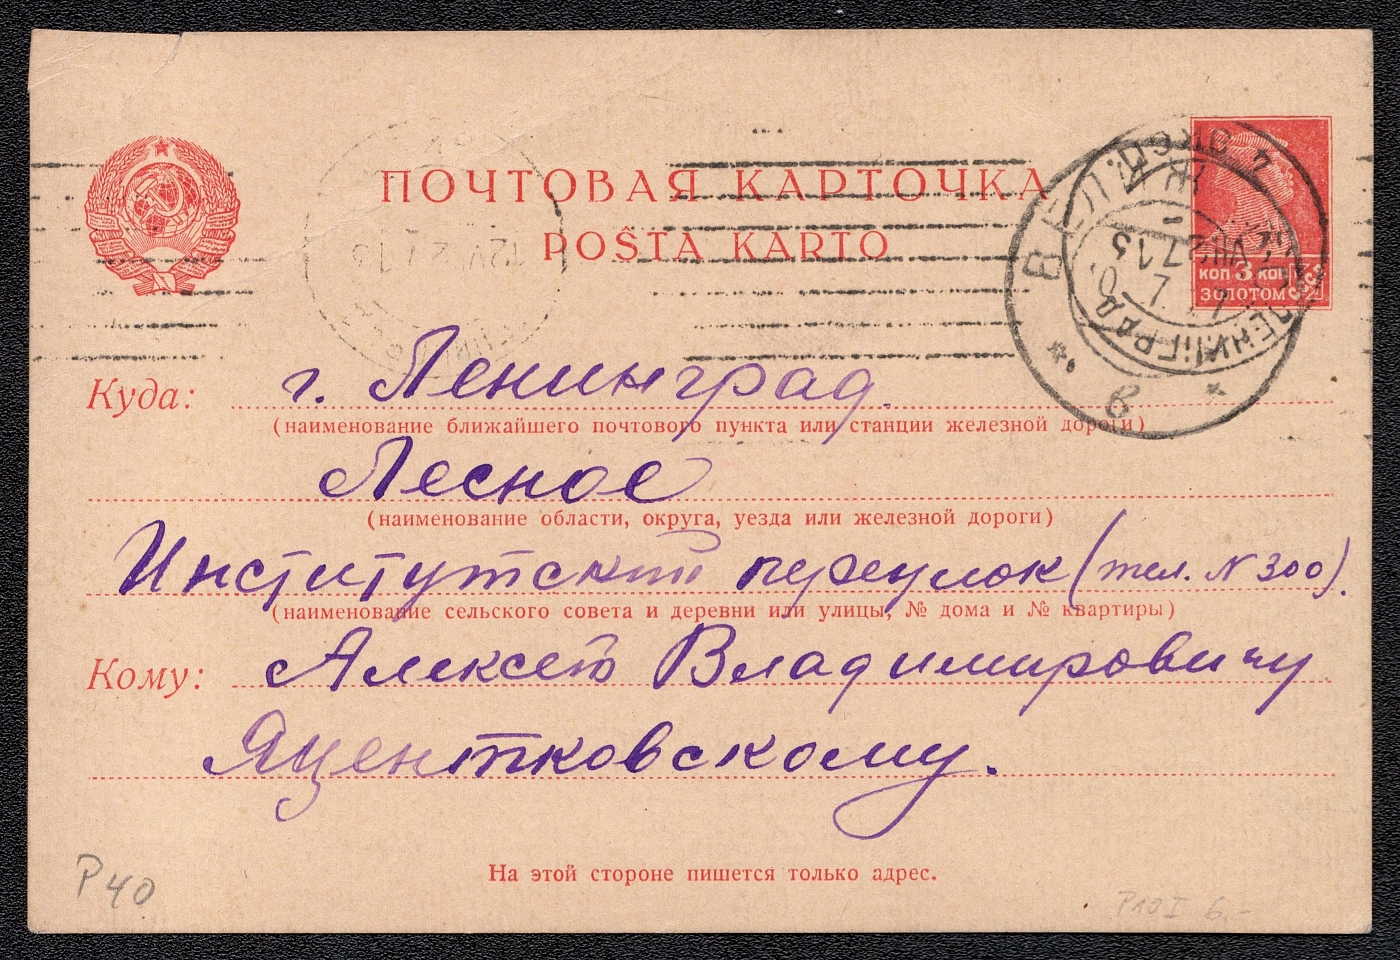 ПОЧТОВАЯ КАРТОЧКА
POŜTA KARTO
КОП 3 КОП
ЗОЛОТОМ
Куда: г. Ленинград.
(наименование ближайшего почтового пункта или станции железной дороги)
Лесное
(наименование области, округа, уезда или железной дороги)
Институтский переулок (тел. N 300).
(наименование сельского совета и деревни или улицы, № дома и № квартиры)
Кому: Алексею Владимировичу
Яцентковскому.
На этой стороне пишется только адрес.
P 40